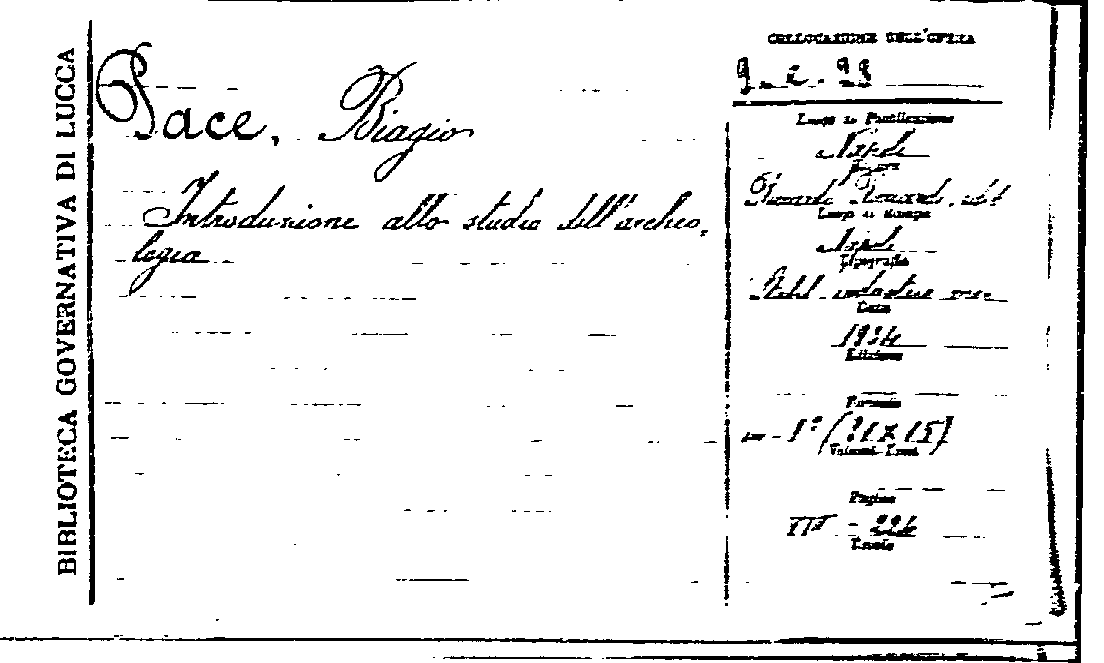 BIBLIOTECA GOVERNATIVA DI LUCCA
Pace, Biagio
Introduzione allo studio dell'archeo-
logia
COLLOCAZIONE DELL'OPERA
Luogo di Pubblicazione
Napoli
Luogo di Stampa
Napoli
Tipografia
Data
1934
Edizione
Formato
in - 8° (21 X 15)
Volumi-Tomi
Pagine
224
Tavole